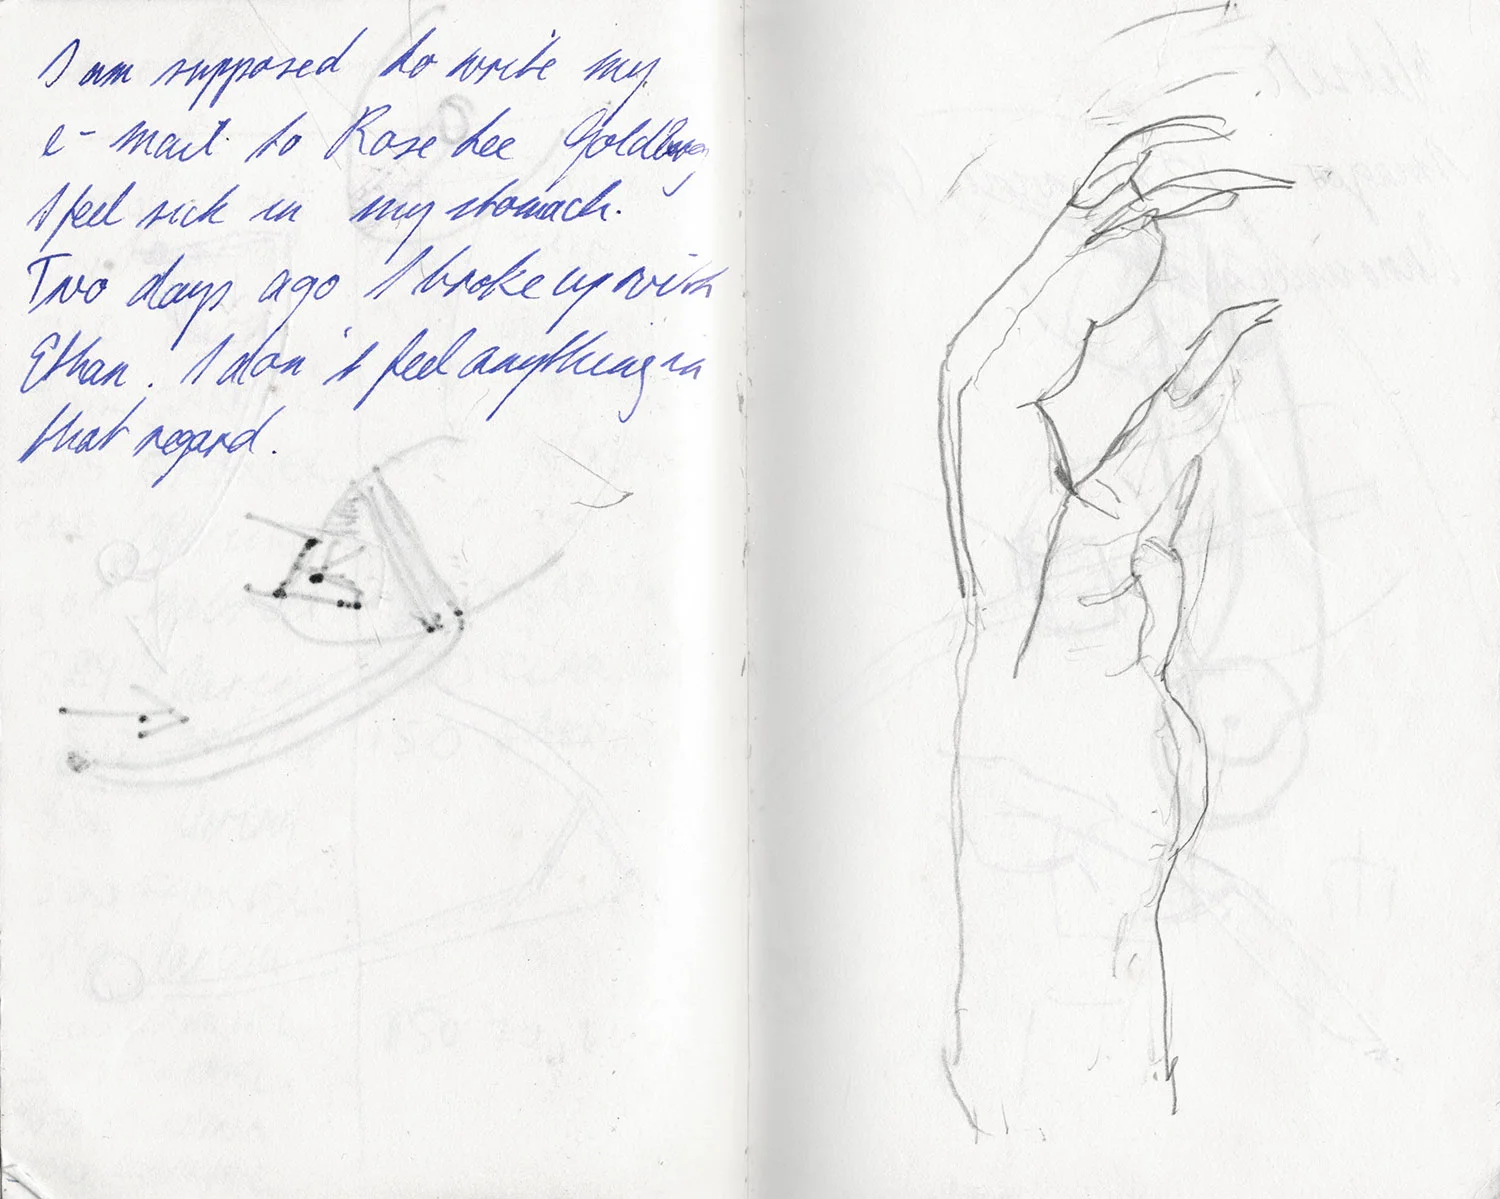 I am supposed to write my
e-mail to Rose Lee Goldberg
I feel sick in my stomach.
Two days ago I broke up with
Ethan. I don't feel anything in
that regard.